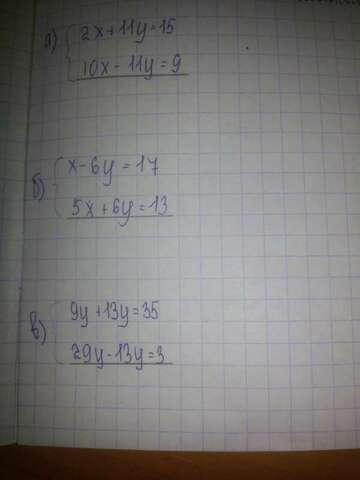 а) 2x+11y=15
10x-11y=9
б) x-6y=17
5x+6y=13
в) 9y+13y=35
29y-13y=3